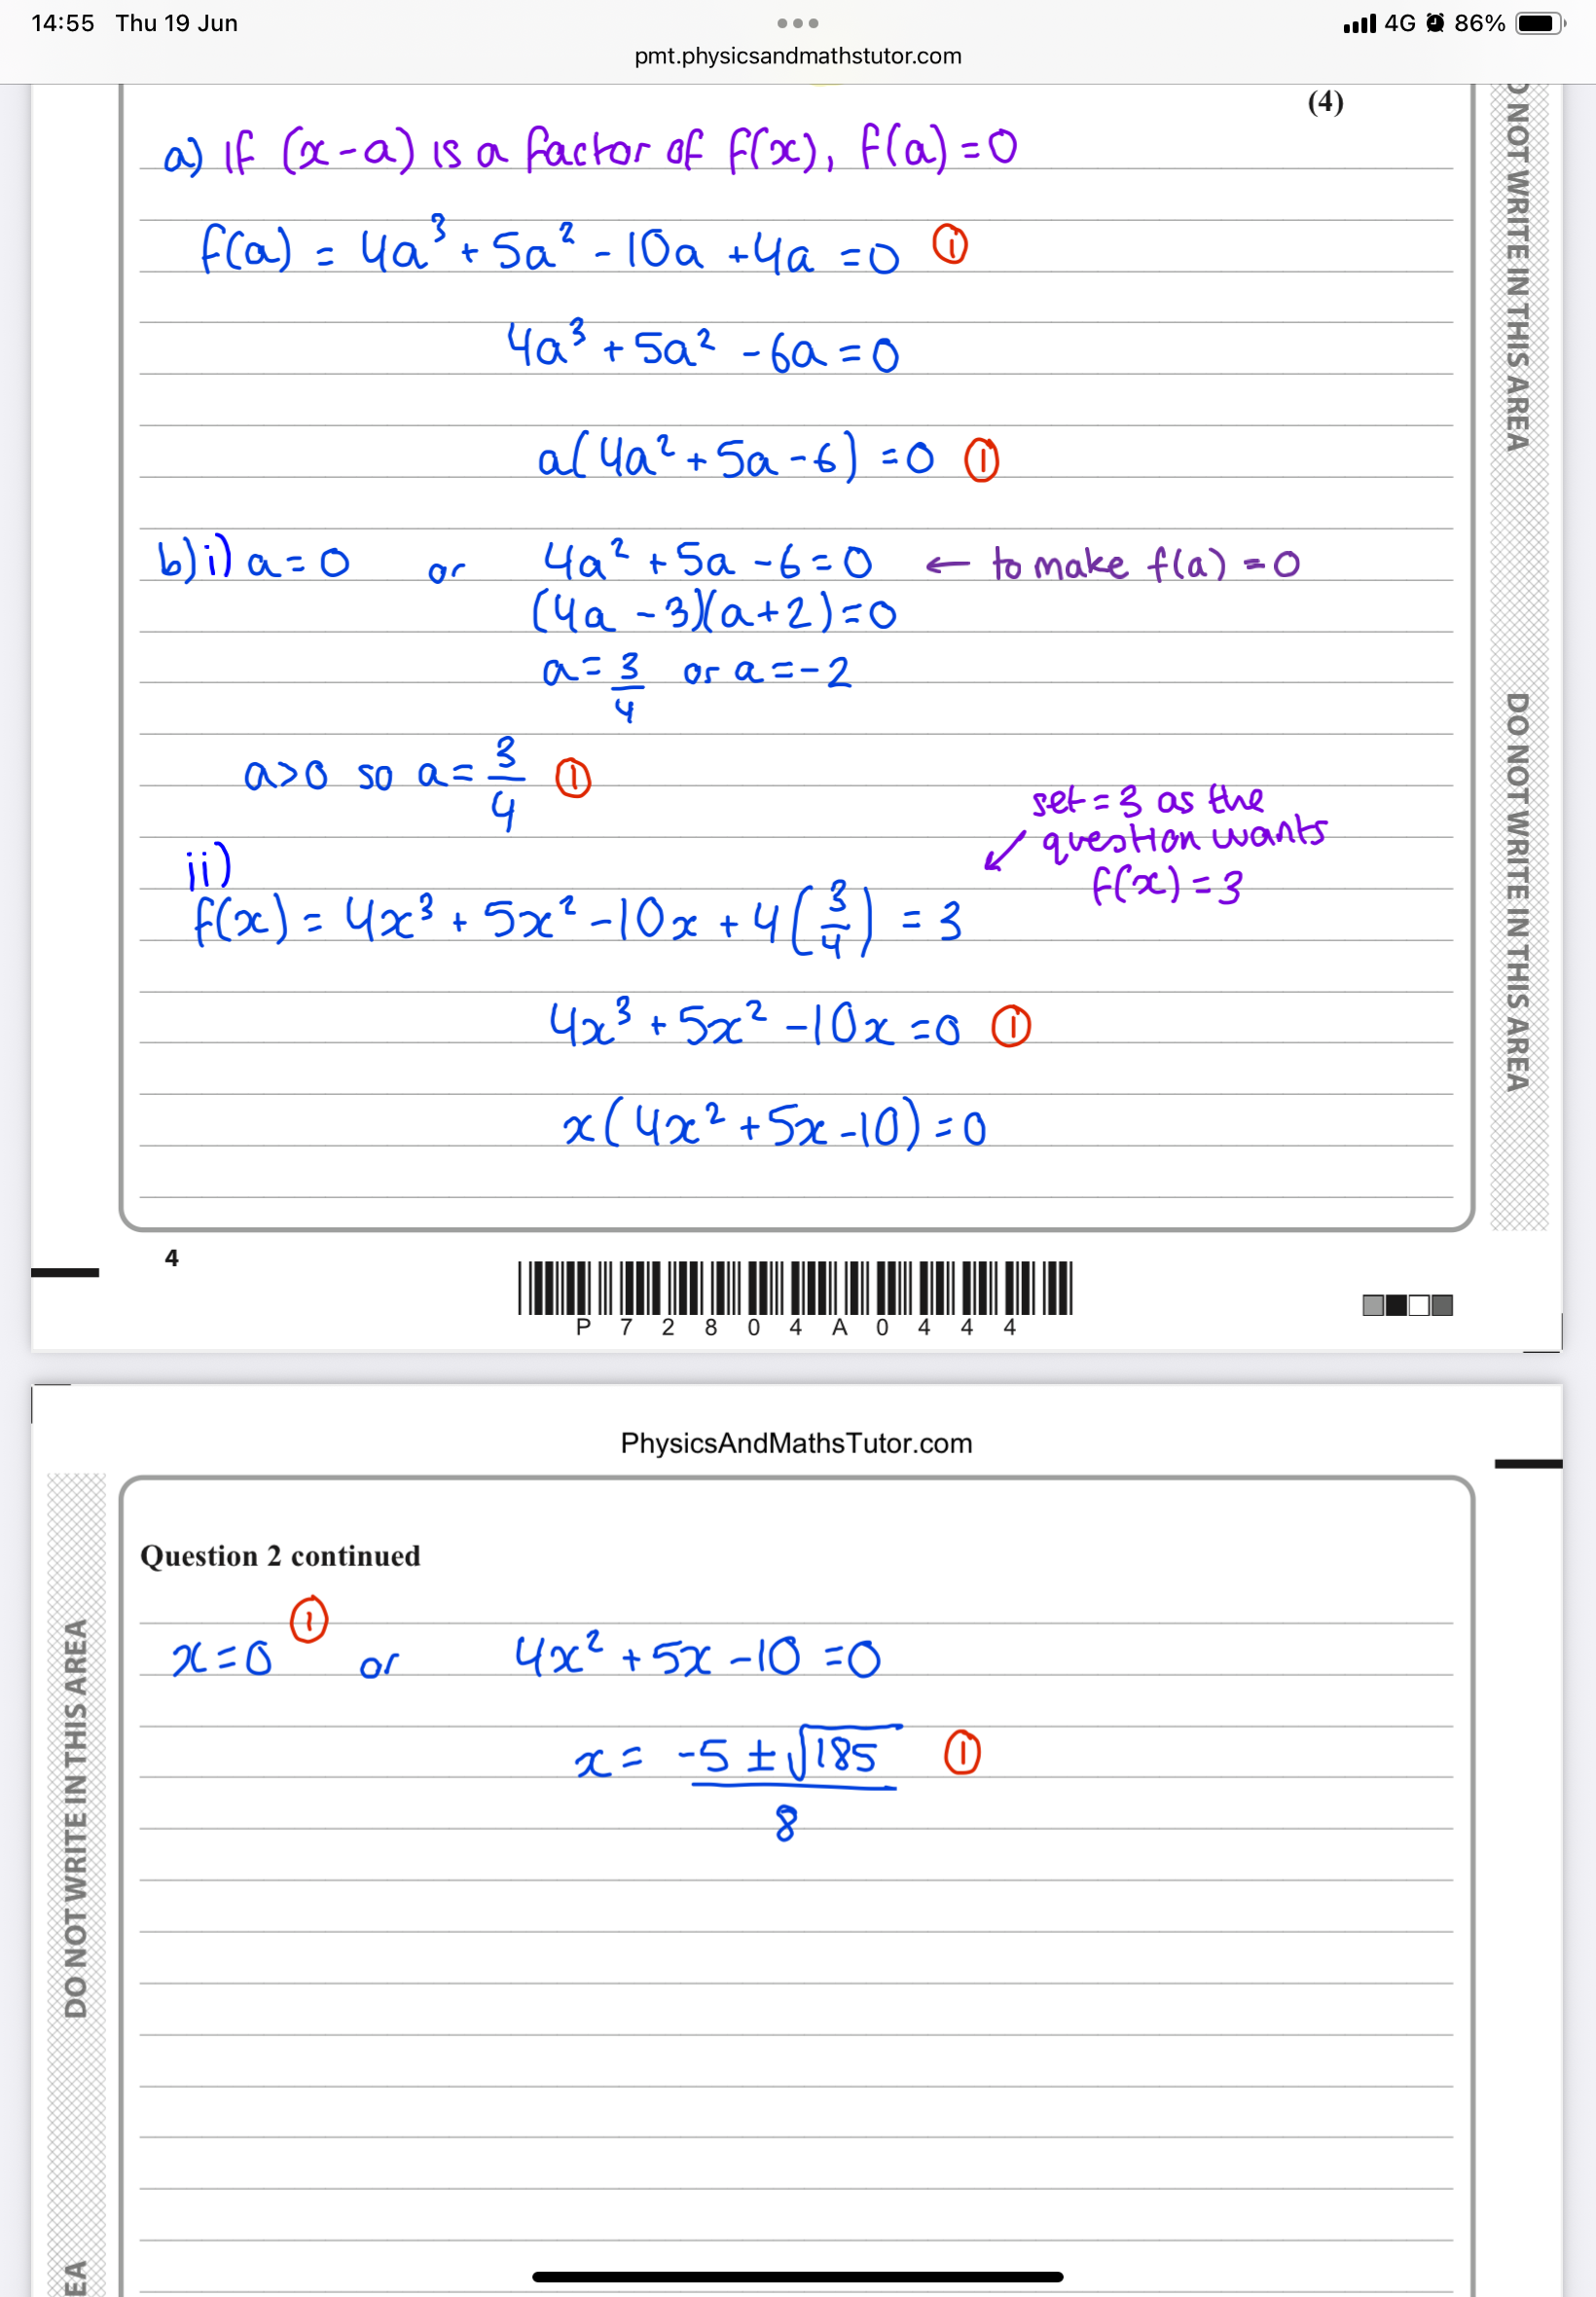 14:55 Thu 19 Jun
4G 86%
pmt.physicsandmathstutor.com
(4)
a) If (x-a) is a factor of f(x), f(a)=0
f(a) = 4a³ + 5a² - 10a + 4a = 0 ①
4a³ + 5a² - 6a = 0
a(4a² + 5a - 6) = 0 ①
b) i) a = 0 or 4a² + 5a - 6 = 0 ← to make f(a) = 0
(4a - 3)(a + 2) = 0
a = 3/4 or a = -2
a>0 so a = 3/4 ①
set = 3 as the
question wants
f(x) = 3
ii)
f(x) = 4x³ + 5x² - 10x + 4(3/4) = 3
4x³ + 5x² - 10x = 0 ①
x(4x² + 5x - 10) = 0
DO NOT WRITE IN THIS AREA
DO NOT WRITE IN THIS AREA
4
P 7 2 8 0 4 A 0 4 4 4
PhysicsAndMathsTutor.com
Question 2 continued
x = 0 ① or 4x² + 5x - 10 = 0
x = -5 ± √185 / 8 ①
DO NOT WRITE IN THIS AREA
EA